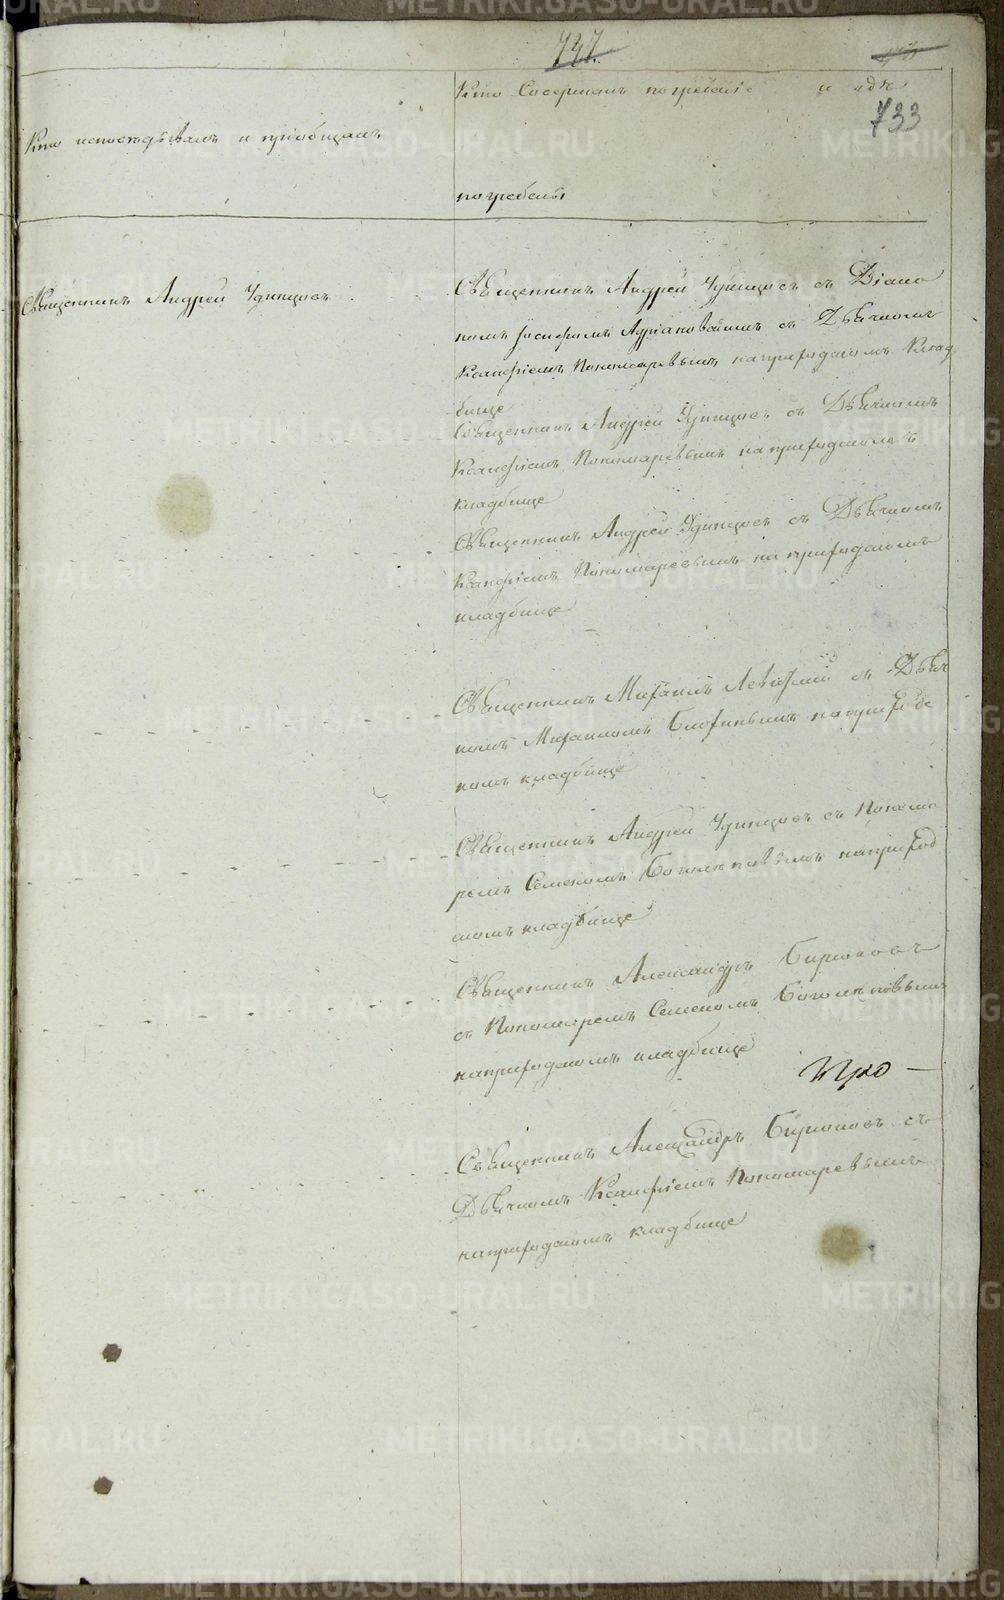 737.
733
Кто исповѣдывалъ и приобщалъ
Кто совершалъ погребенiе и гдѣ
погребены
Священникъ Андрей Удинцовъ
Священникъ Андрей Удинцовъ съ Дiако
номъ Iосифомъ съ Дьячкомъ
Ксанфiемъ Пономаревымъ на приходскомъ Клад
бище
Священникъ Андрей Удинцовъ съ Дьячкомъ
Ксанфiемъ Пономаревымъ на приходскомъ
кладбище
Священникъ Андрей Удинцовъ съ Дьячкомъ
Ксанфiемъ Пономаревымъ на приходскомъ
кладбище
Священникъ Михаилъ Левитскiй съ Дьяч
комъ Михаиломъ на приход
комъ кладбище
Священникъ Андрей Удинцовъ съ Понома
ремъ Семеномъ Боголеповымъ на приход
скомъ кладбище
Священникъ Александръ Бирюковъ
съ Пономаремъ Семеномъ Боголеповымъ
на приходскомъ кладбище
Священникъ Александръ Бирюковъ съ
Дьячкомъ Ксанфiемъ Пономаревымъ
на приходскомъ кладбище
METRIKI.GASO-URAL.RU